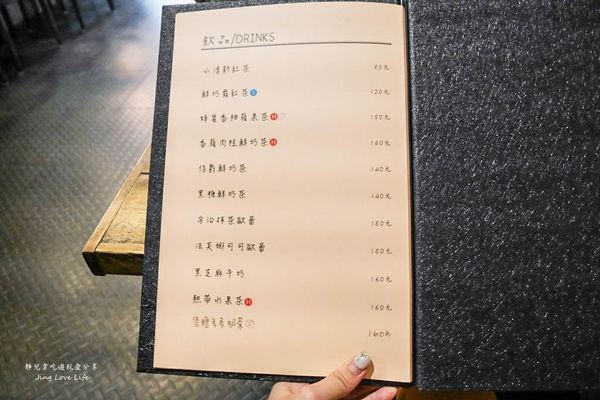 飲品/DRINKS
小清新紅茶 80元
鮮奶霜紅茶 I 120元
蜂蜜香柚蘋果茶 H I 150元
香蘋肉桂鮮奶茶 H 160元
伯爵鮮奶茶 140元
黑糖鮮奶茶 140元
宇治抹茶歐蕾 160元
法芙娜可可歐蕾 180元
黑芝麻牛奶 160元
熱帶水果茶 H 160元
焦糖多多奶茶 160元
靜兒貪吃遊玩愛分享
Jing Love Life